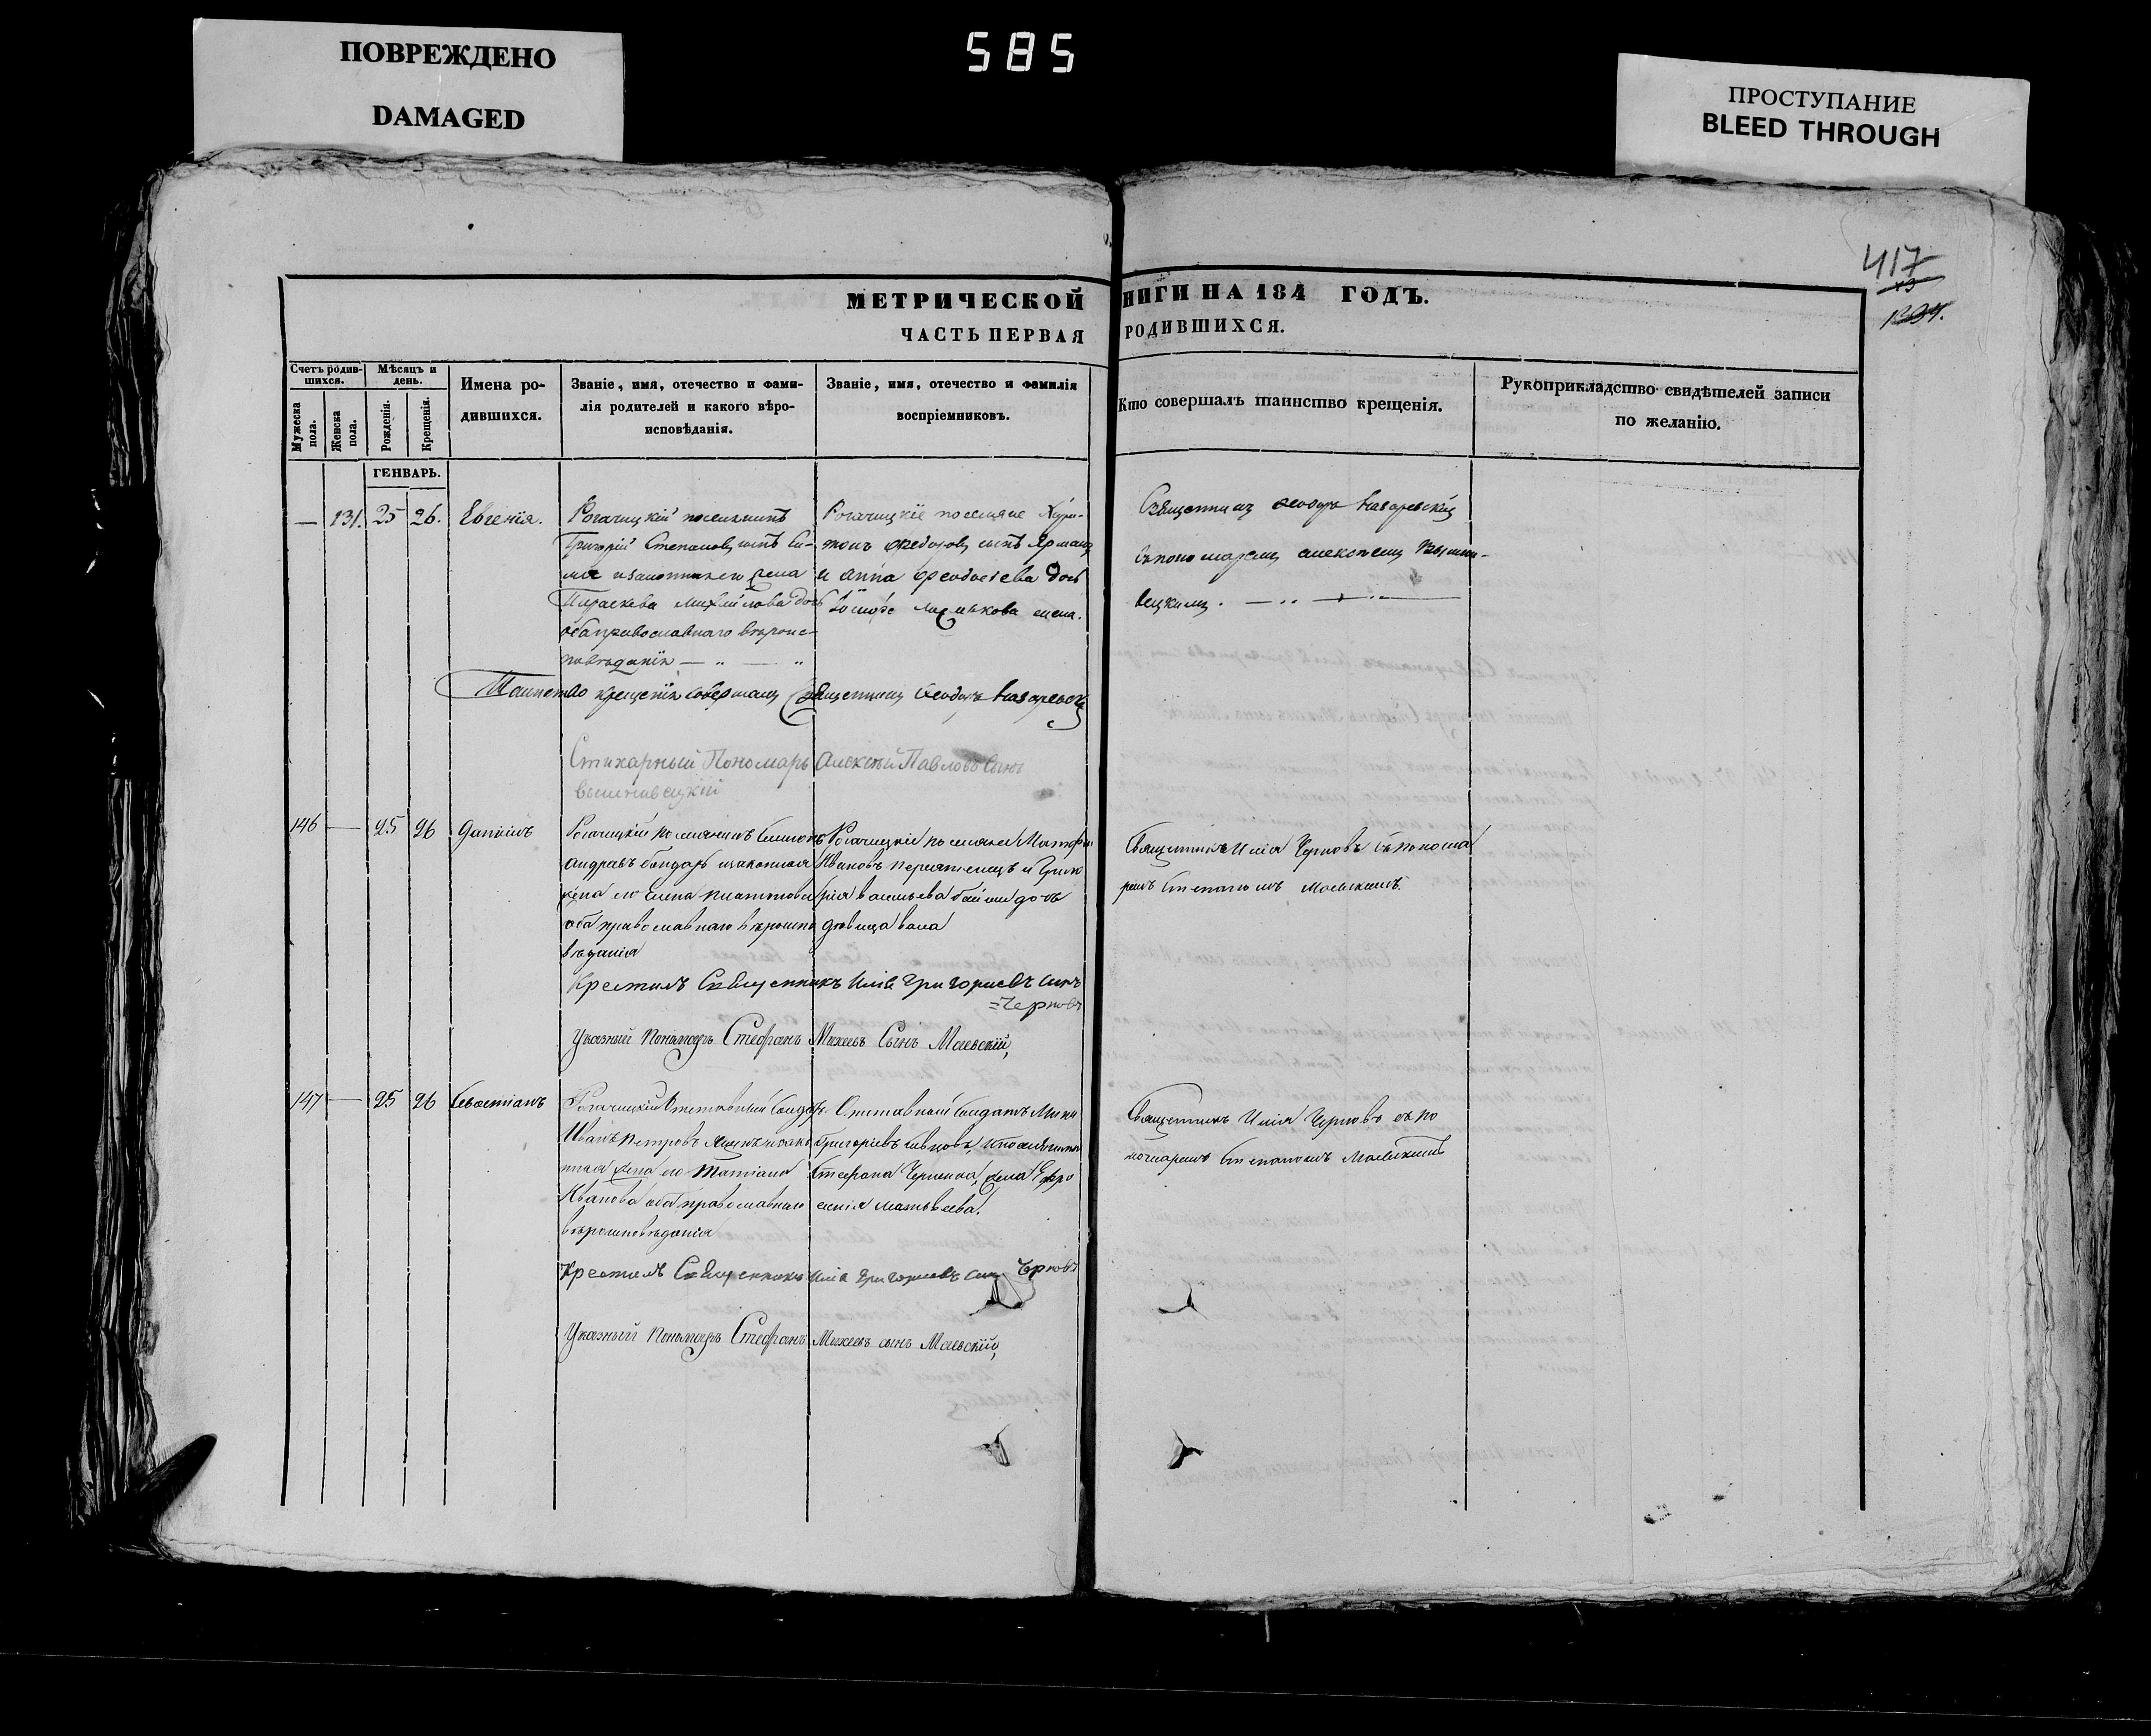 ПОВРЕЖДЕНО
DAMAGED
585
ПРОСТУПАНИЕ
BLEED THROUGH
417
МЕТРИЧЕСКОЙ НИГИ НА 184 ГОДЪ.
ЧАСТЬ ПЕРВАЯ РОДИВШИХСЯ.
Счетъ родив-
шихся.
Мужеска
пола.
Женска
пола.
Мѣсяцъ и
день.
Рожденія.
Крещенія.
Имена ро-
дившихся.
Званіе, имя, отечество и фами-
лія родителей и какого вѣро-
исповѣданія.
Званіе, имя, отечество и фамилія
воспріемниковъ.
Кто совершалъ таинство крещенія.
Рукоприкладство свидѣтелей записи
по желанію.
ГЕНВАРЬ.
— 131. 25 26. Евгенія.
Рогачицкій поселянинъ
Григорій Степановъ сынъ
и законная его жена
Параскева Михайлова дочь
оба православнаго вѣроис-
повѣданія
Рогачицкіе поселяне
сынъ
и Анна Феодосіева дочь
жена.
Священникъ Феодоръ Назаревскій
съ пономаремъ Алексѣемъ Вышни-
вецкимъ.
Таинство крещенія совершалъ Священникъ Феодоръ Назаревскій
Стихарный Пономарь Алексѣй Павловъ сынъ
Вышнивецкій
146 — 25 26 Даніилъ
Рогачицкій поселянинъ Симеонъ
бондарь и законная
жена его Елена Платонова
оба православнаго вѣроиспо
вѣданія
Рогачицкіе поселяне Матфей
Ивановъ и
Васильева дочь
Священникъ Илія Черновъ съ понома
ремъ Стефаномъ Маевскимъ.
Крестилъ Священникъ Илія Григориевъ сынъ
=Черновъ
Указный Пономарь Стефанъ Михеевъ Сынъ Маевскій,
147 — 25 26 Севастіанъ
Рогачицкій Отставный Солдатъ
Иванъ Петровъ и закон
ная жена его Татіана
Иванова оба православнаго
вѣроисповѣданія
Отставный Солдатъ
Григоріевъ и поселянина
Стефана жена Ефро
синія Матвѣева.
Священникъ Илія Черновъ съ по
номаремъ Стефаномъ Маевскимъ
Крестилъ Священникъ Илія Григориевъ сынъ Черновъ
Указный Пономарь Стефанъ Михеевъ сынъ Маевскій,